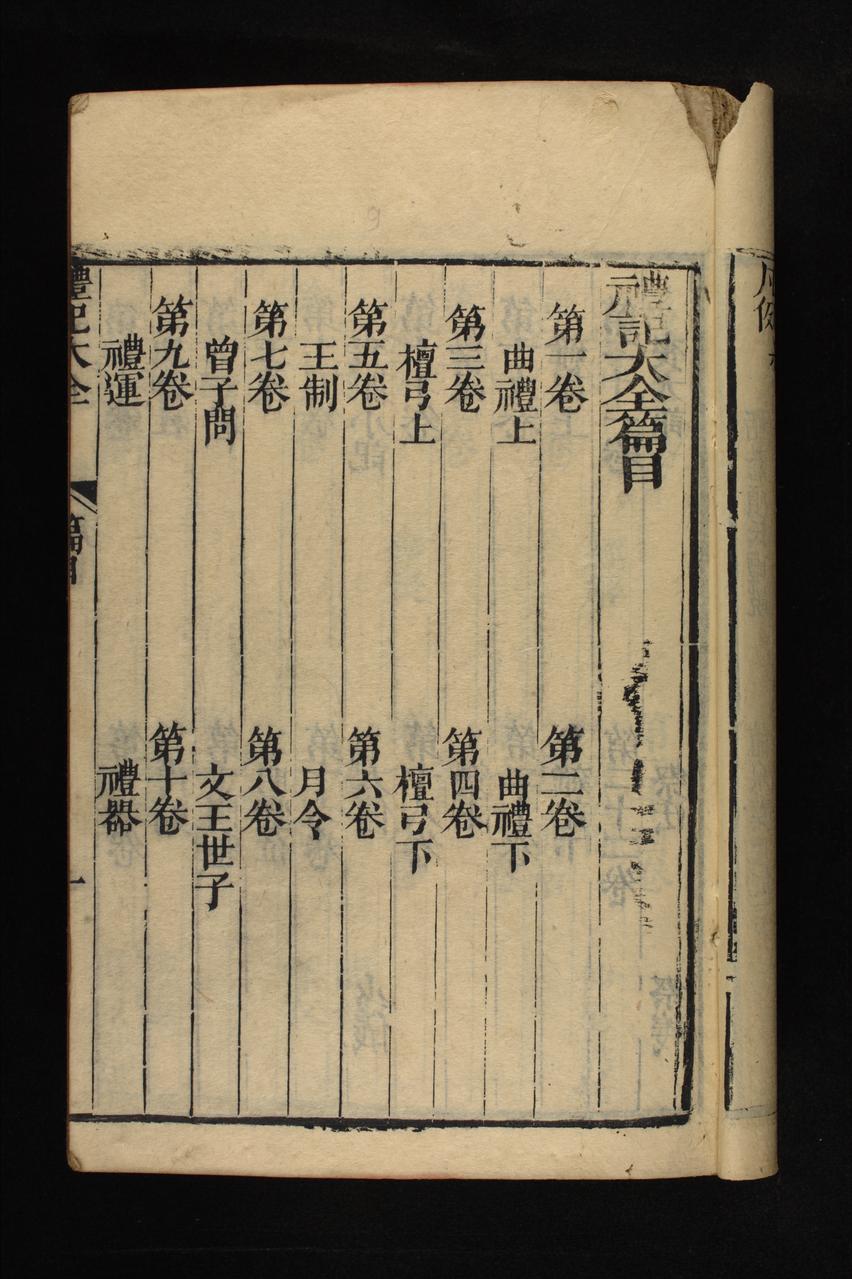 禮記大全篇目
第一卷　第二卷
曲禮上　曲禮下
第三卷　第四卷
檀弓上　檀弓下
第五卷　第六卷
王制　月令
第七卷　第八卷
曾子問　文王世子
第九卷　第十卷
禮運　禮器
禮記大全　篇目　一